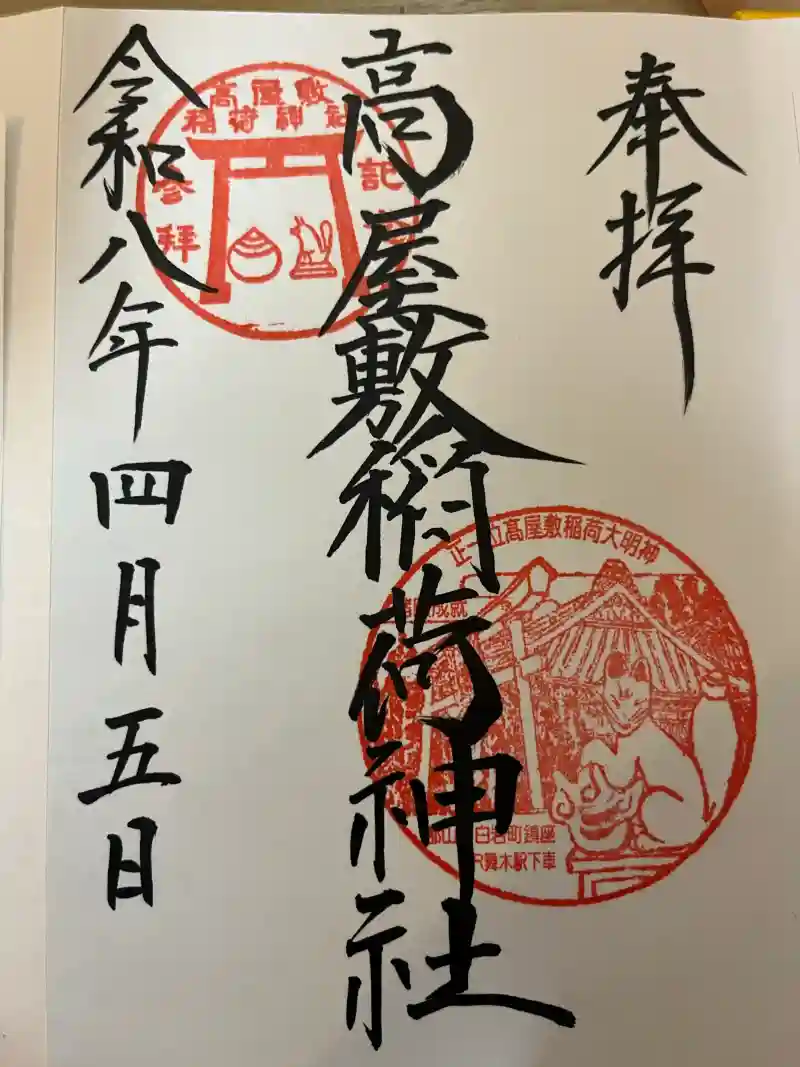 奉拝
高屋敷稲荷神社
令和八年四月五日
高屋敷
稲荷神社
参拝
記
正一位高屋敷稲荷大明神
白岩町鎮座
JR舞木駅下車